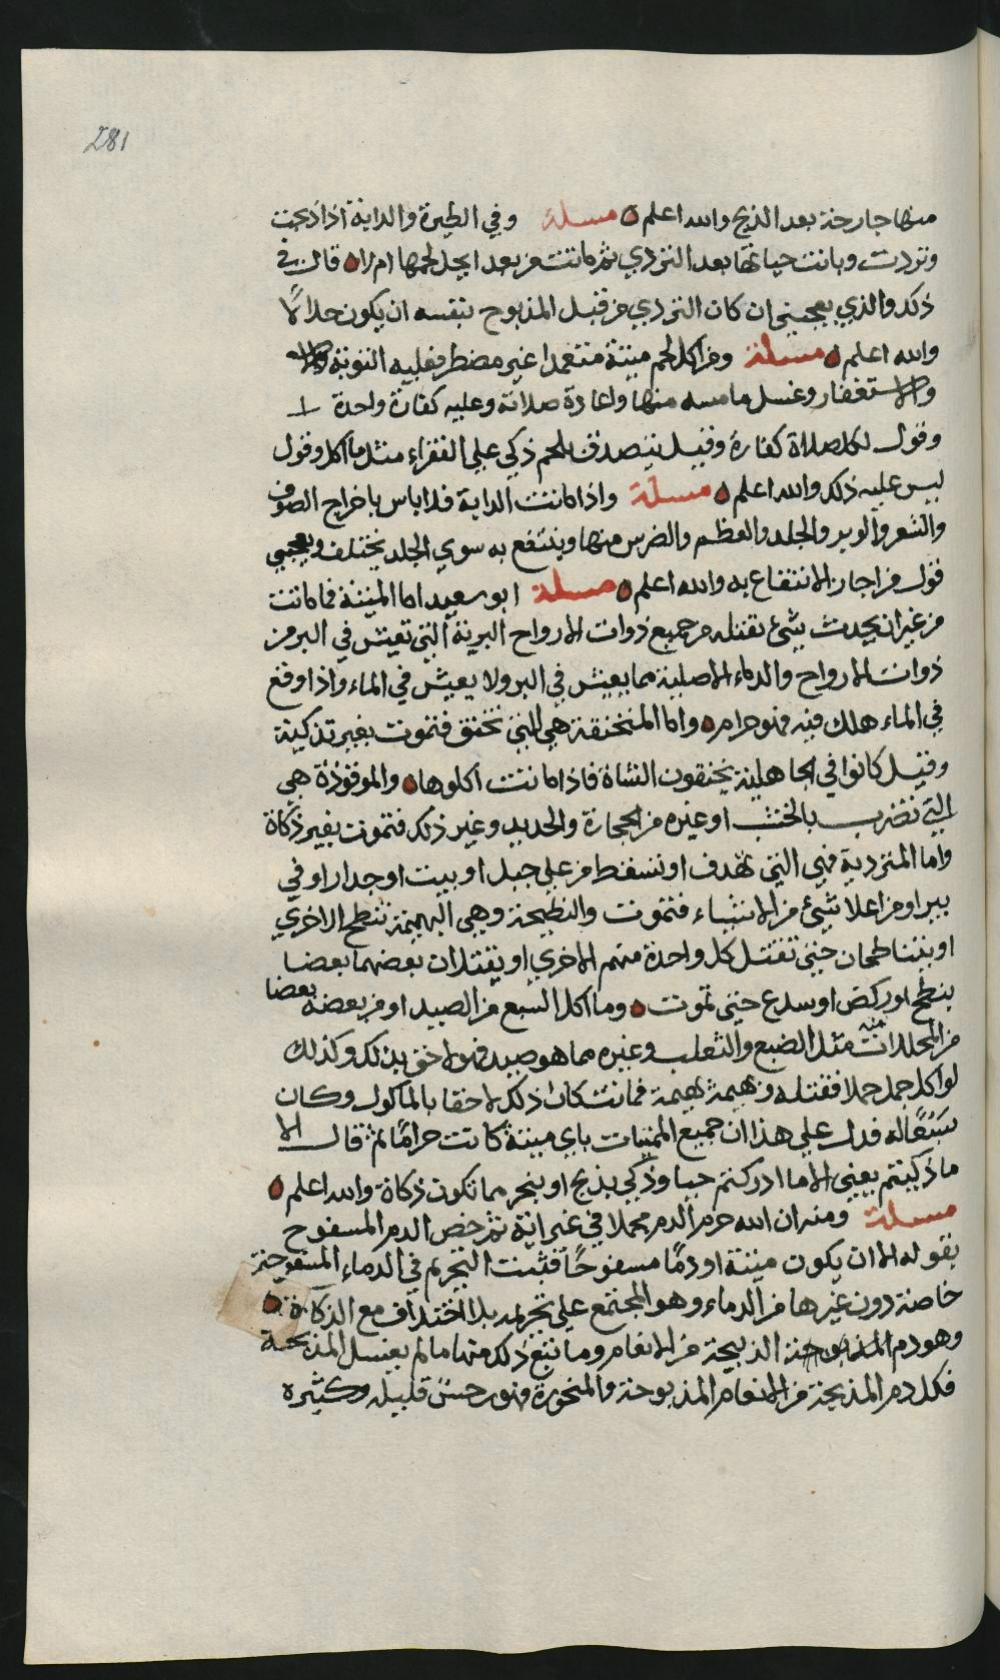 281
منها جارحة بعد الذبح والله اعلم مسلة وفي الطيرة والدابة اذا ذبحت
وتردت وبانت حياتها بعد التردي ثم ماتت من بعد ايحل لحمها ام لا قال في
ذلك والذي يعجبني ان كان التردي من قبل المذبوح بنفسه ان يكون حلالا
والله اعلم مسلة ومن اكل لحم ميتة متعمدا غير مضطر فعليه التوبة
والاستغفار وغسل ما مسه منها واعادة صلاته وعليه كفارة واحدة
وقول لكل صلاة كفارة وقيل يتصدق بلحم ذكي علي الفقراء مثل ما اكل وقول
ليس عليه ذلك والله اعلم مسلة واذا ماتت الدابة فلا باس باخراج الصوف
والشعر والوبر والجلد والعظم والضرس منها وينتفع به سوي الجلد يختلف ويعجبني
قول من اجاز الانتفاع به والله اعلم مسلة ابو سعيد اما الميتة فما ماتت
من غير ان يحدث شئ يقتله من جميع ذوات الارواح البرية التي تعيش في البر من
ذوات الارواح والدماء الاصلية مما يعيش في البر ولا يعيش في الماء واذا وقع
في الماء هلك فيه فهو حرام واما المنخنقة هي التي تختنق فتموت بغير تذكية
وقيل كانوا في الجاهلية يخنقون الشاة فاذا ماتت اكلوها والموقوذة هي
التي تضرب بالخشب او غيره من الحجارة والحديد وغير ذلك فتموت بغير ذكاة
واما المتردية فهي التي تهدف او تسقط من علي جبل او بيت او جدار او في
بير او من اعلا شئ من الاشياء فتموت والنطيحة وهي البهيمة تنطح الاخري
او يتناطحان حتي تقتل كل واحدة منهم الاخري او يقتلان بعضهما بعضا
بنطح او ركض او سدع حتي تموت وما اكل السبع من الصيد او من بعضه بعضا
من المحللات منه مثل الضبع والثعلب وغيره مما هو صيد فهو لاحق بذلك وكذلك
لو اكل جمل جملا فقتله وبهيمة بهيمة فماتت كان ذلك لاحقا بالماكول وكان
سَبُعًا له فدل علي هذا ان جميع الميتات باي ميتة كانت حرامًا ثم قال الا
ما ذكيتم يعني الا ما ادركتم حيا وذكي بذبح او بنحر مما تكون ذكاة والله اعلم
مسلة ومنه ان الله حرم الدم مجملا في غير اية ثم خص الدم المسفوح
بقوله الا ان يكون ميتة او دمًا مسفوحًا فثبت التحريم في الدماء المسفوحة
خاصة دون غيرها من الدماء وهو المجتمع علي تحريمه بلا اختلاف مع الذكاة
وهو دم الذبيحة من الانعام وما تبع ذلك منها ما لم يغسل المذبحة
فكل دم المذبحة من الانعام المذبوحة والمنحورة فهو رجس قليله وكثيره